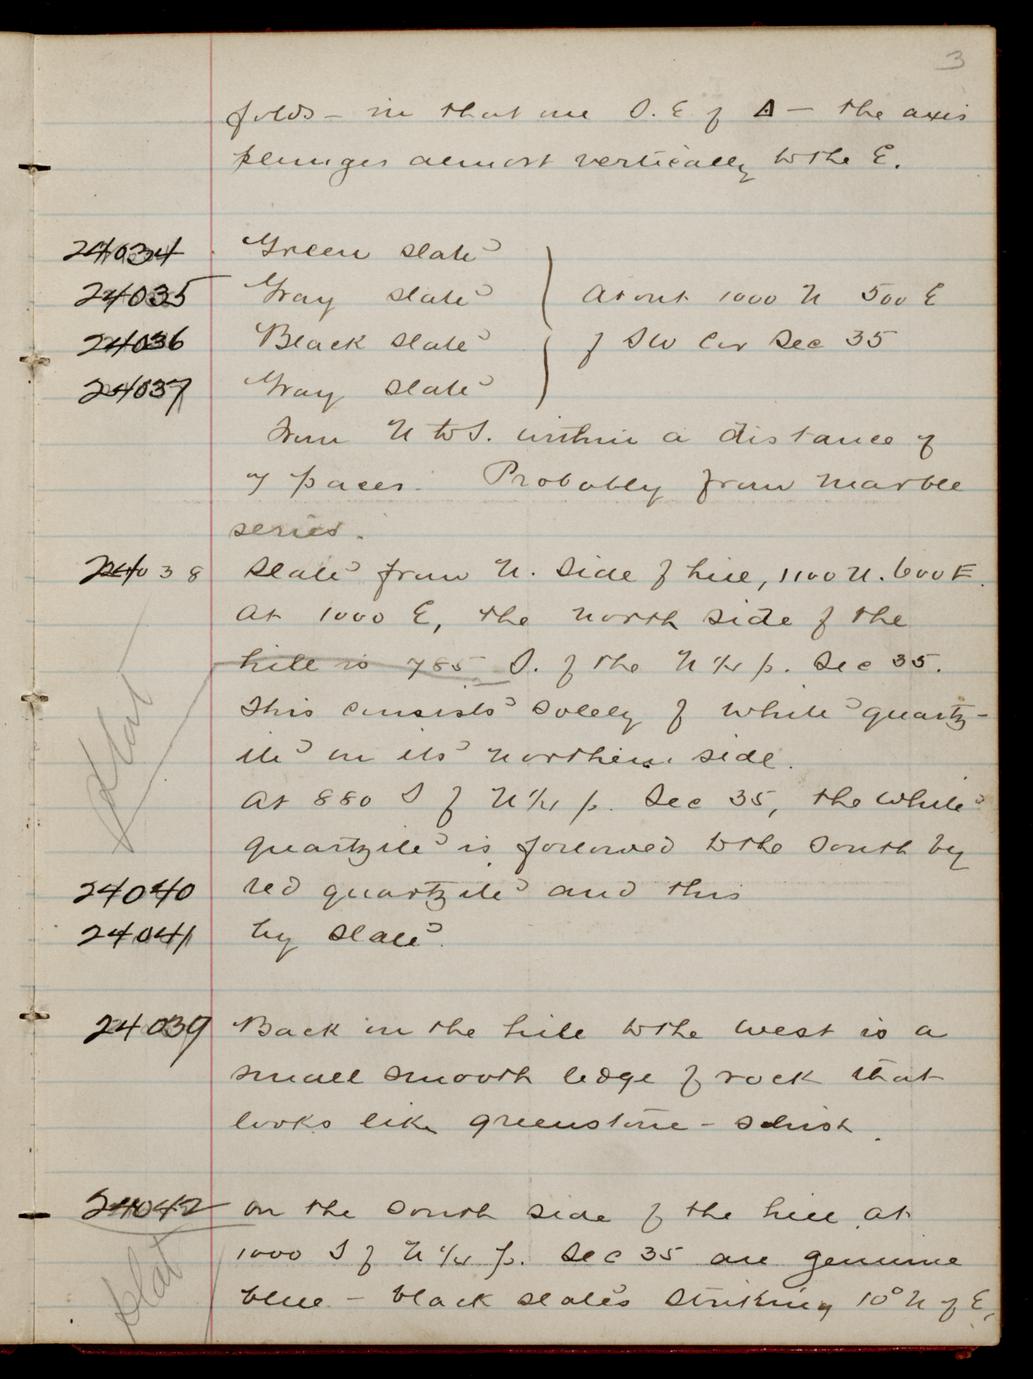 3
folds - in that one S.E of Δ - the axis
plunges almost vertically to the E.
24034 Green slate
24035 Gray slate } About 1000 N 500 E
24036 Black slate } of SW Cor Sec 35
24037 Gray slate
From N to S. within a distance of
7 paces. Probably from marble
series.
24038 Slate from N. side of hill, 1100 N. 600 E.
At 1000 E, the north side of the
hill is 785 S. of the N 1/4 p. Sec 35.
This consists solely of white quartz-
ite on its northern side.
At 880 S of N 1/4 p. Sec 35, the white
quartzite is followed to the south by
24040 red quartzite and this
24041 by slate.
Slat
24039 Back in the hill to the west is a
small smooth ledge of rock that
looks like greenstone - schist.
24042 On the south side of the hill at
1000 S of N 1/4 p. Sec 35 are genuine
blue - black slates striking 10° N of E,
Slat